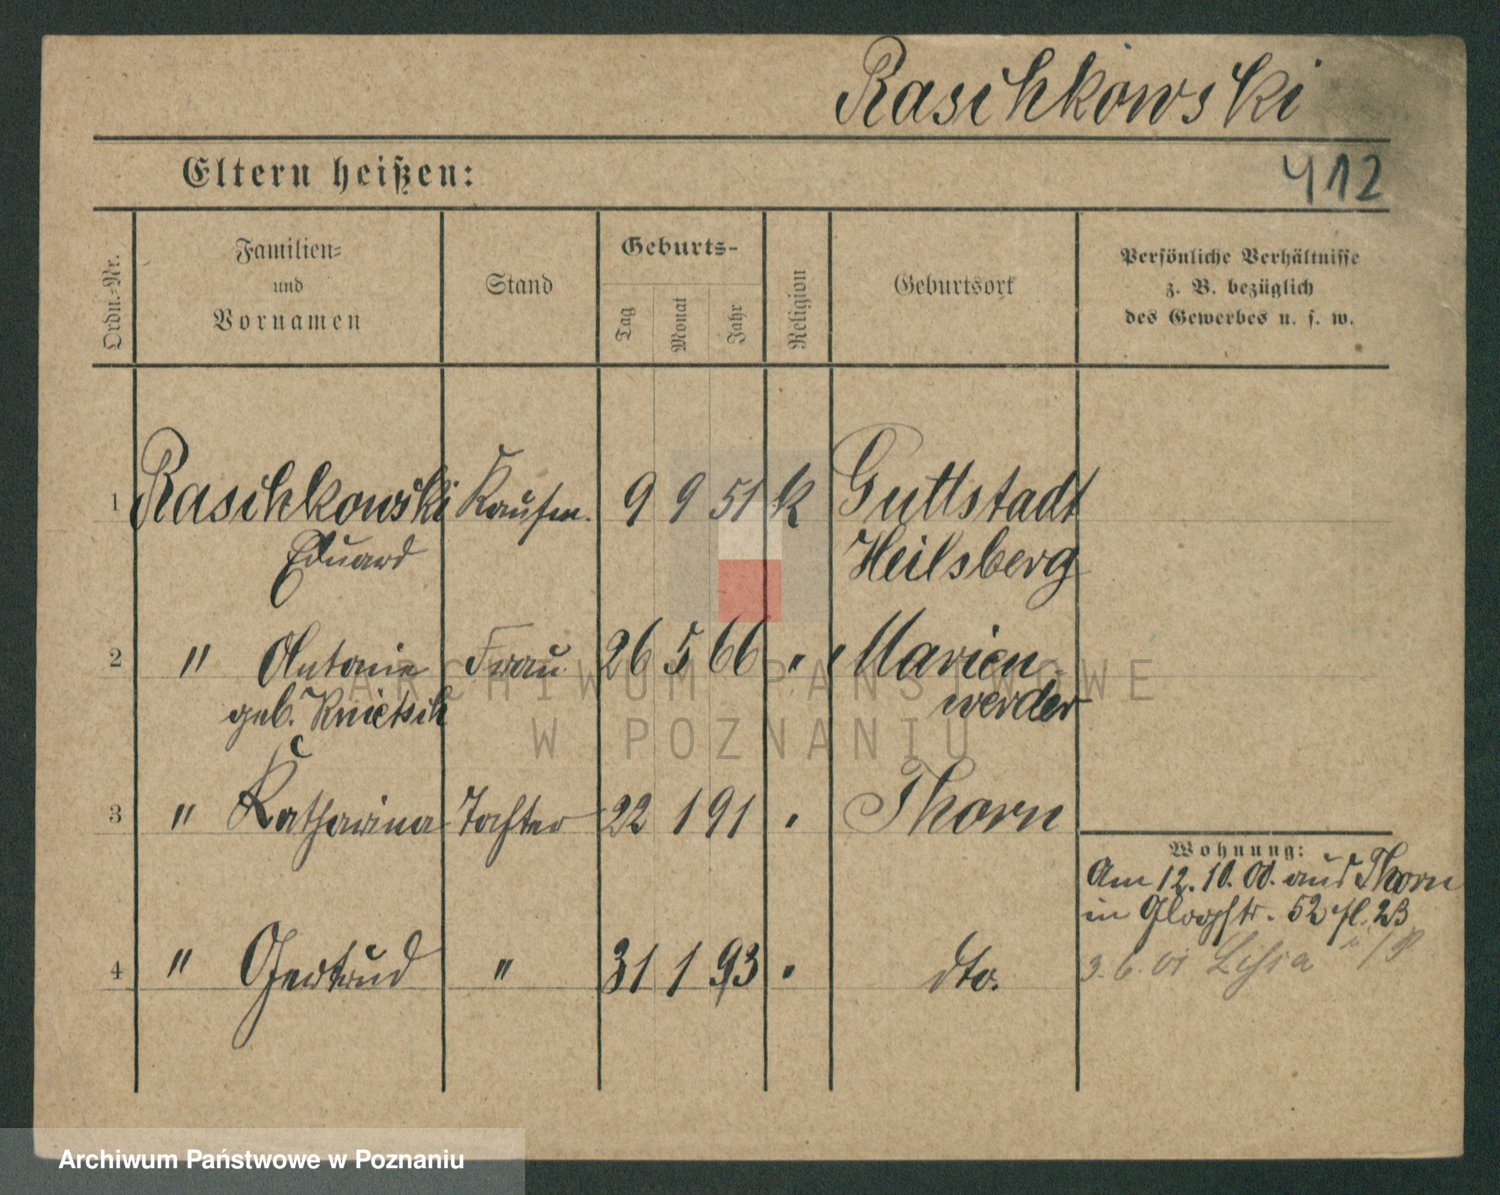 Raschkowski
Eltern heißen:
412
Ordn.-Nr.
Familien-
und
Vornamen
Stand
Geburts-
Tag
Monat
Jahr
Religion
Geburtsort
Persönliche Verhältnisse
z. B. bezüglich
des Gewerbes u. s. w.
1 Raschkowski Kaufm. 9 9 51 k Guttstadt
Eduard Heilsberg
2 " Antonie Frau 26 5 66 " Marien-
geb. werder
3 " Katharina Tochter 22 1 91 " Thorn
Wohnung:
Am 12. 10. 00. aus Thorn
in 52
4 " Gertrud " 31 1 93 " dto.
3. 6. 01 Lissa i/P
ARCHIWUM PAŃSTWOWE
W POZNANIU
Archiwum Państwowe w Poznaniu